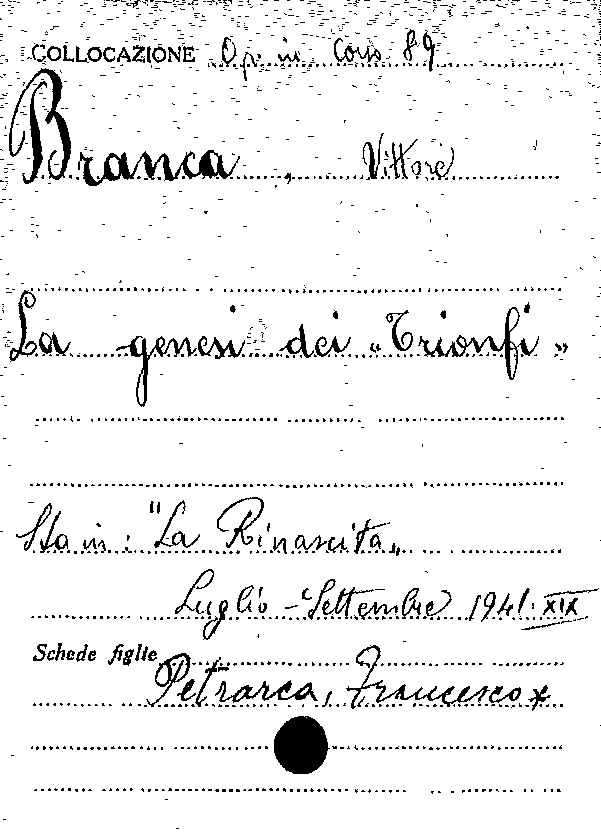 COLLOCAZIONE Op. in Corso 89
Branca, Vittore
La genesi dei «Trionfi»
Sta in: "La Rinascita„
Luglio - Settembre 1941. XIX
Schede figlie
Petrarca, Francesco x